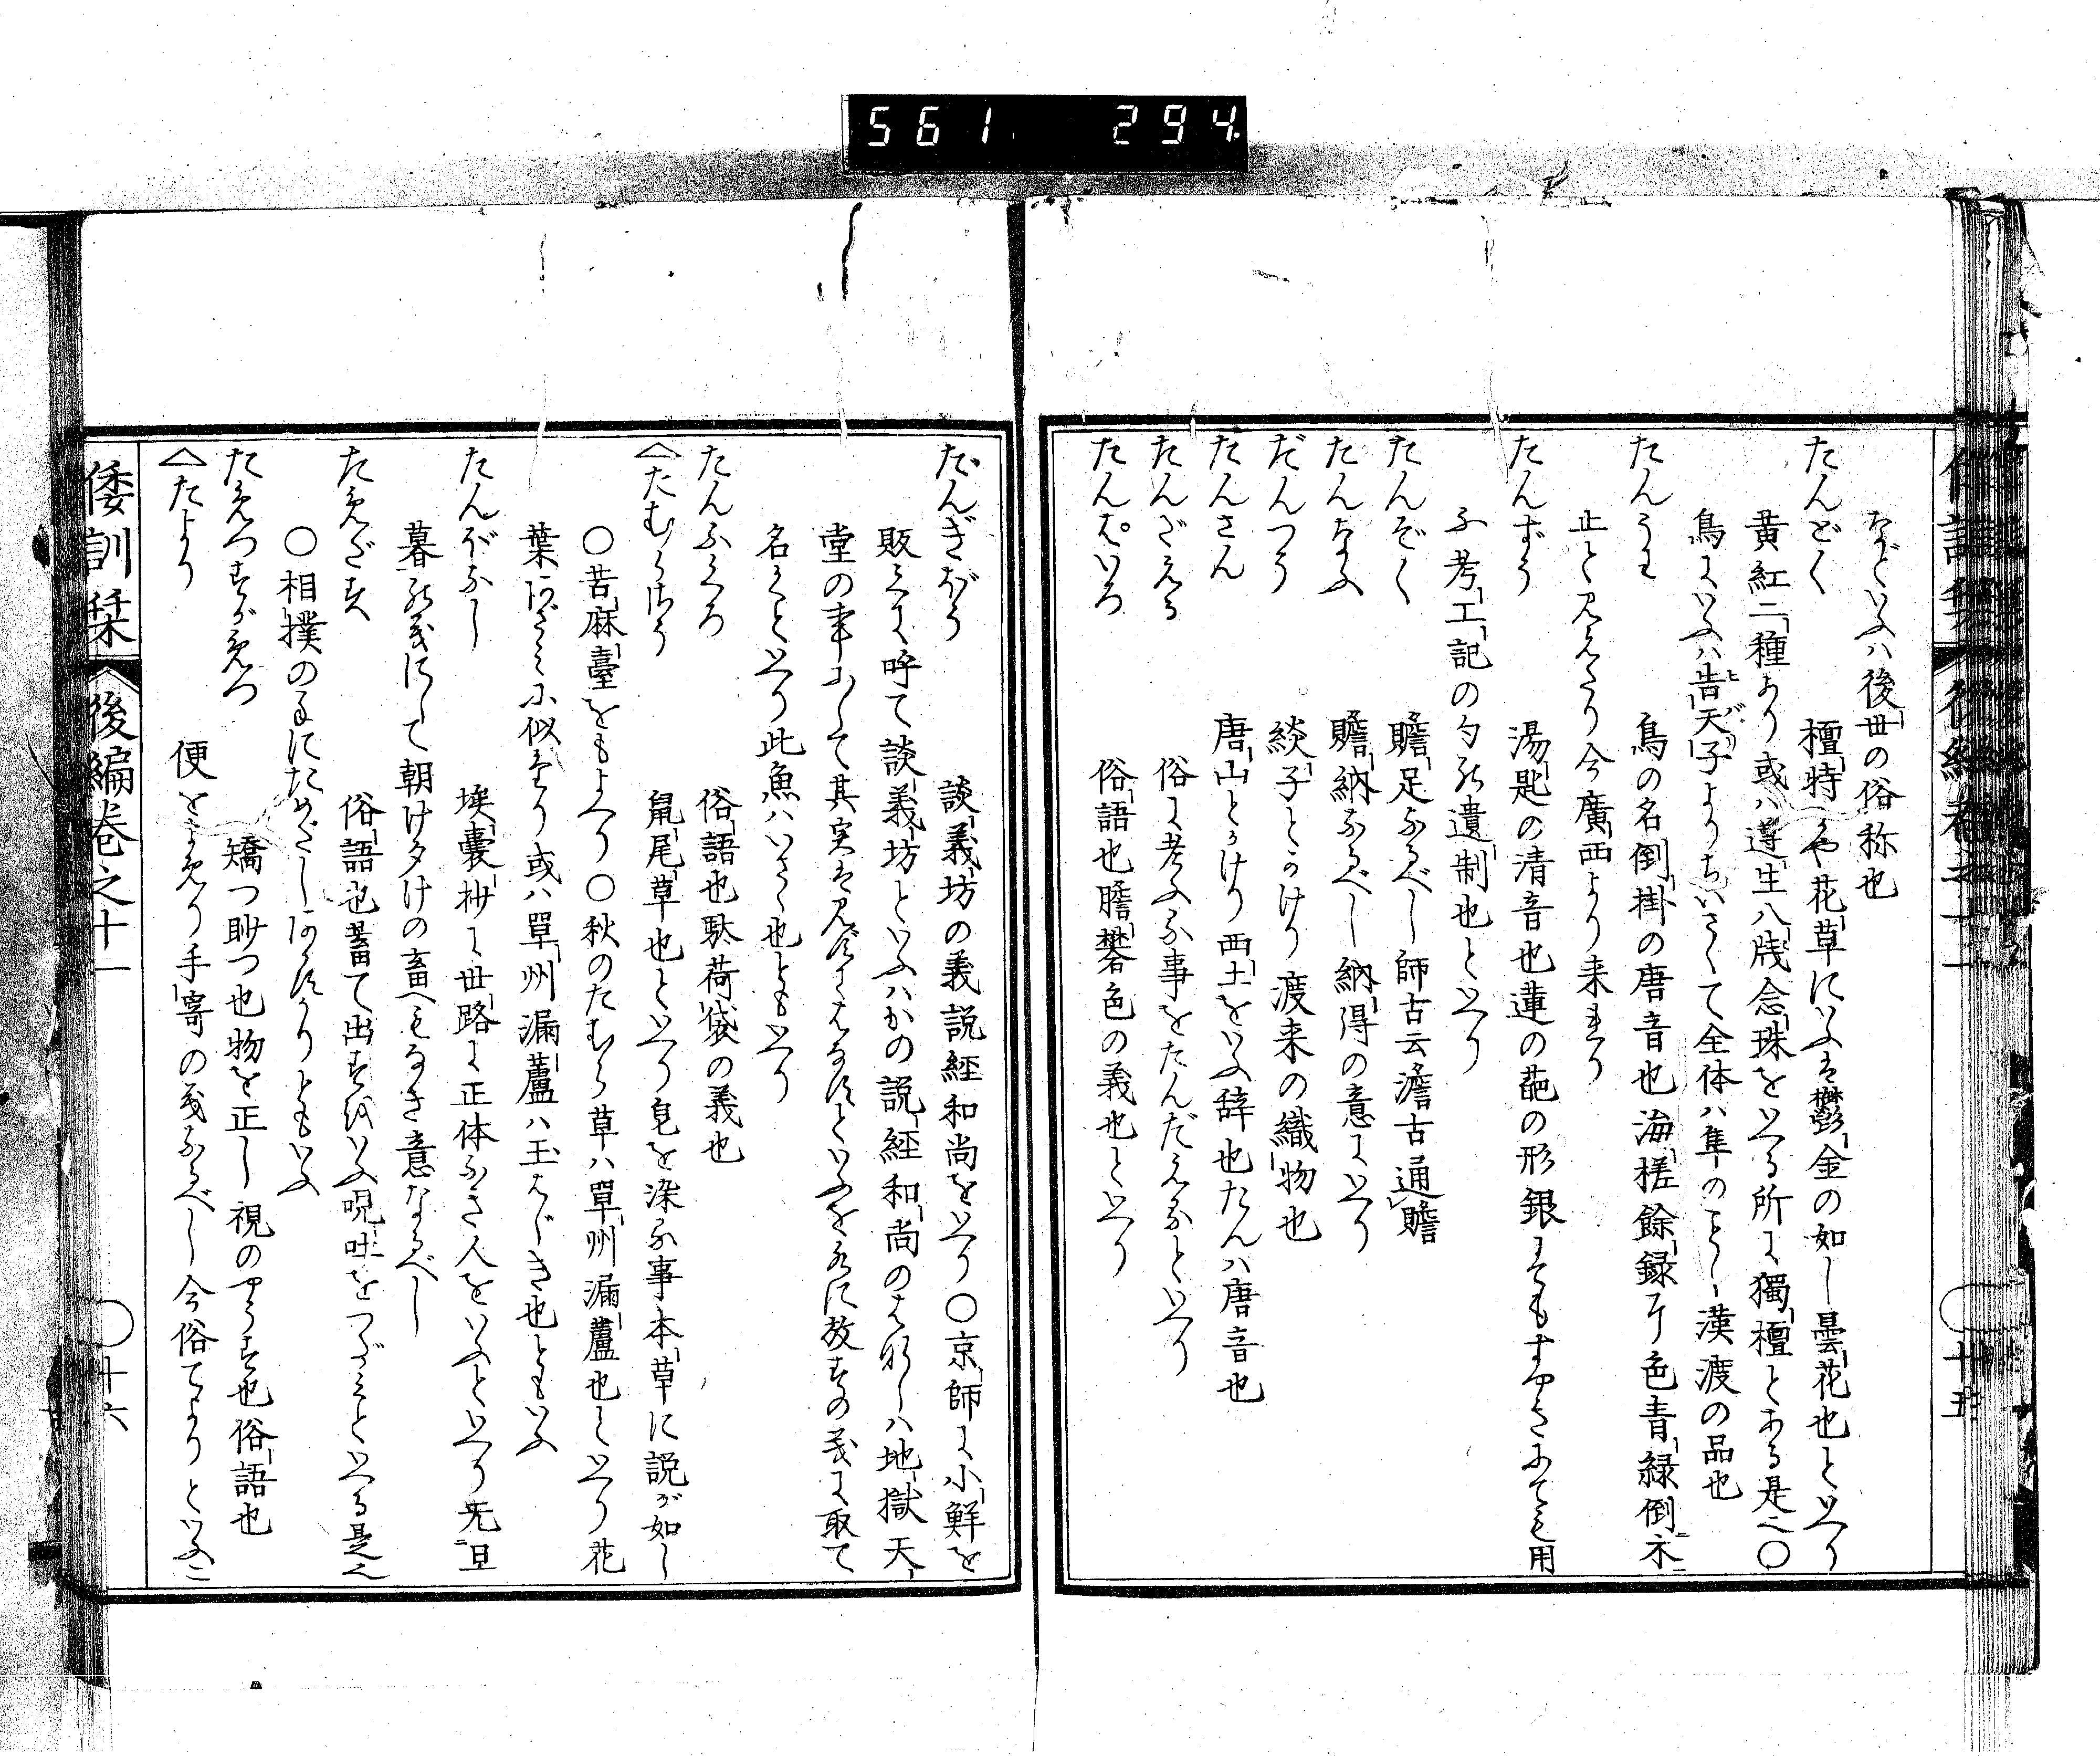 561 294
なといふハ後世の俗称也
たんどく 檀時や花草にいふは鬱金の如し曇花也といへり
黄紅二種あり或ハ遵生八牋念珠をいへる所に獨檀とある是也〇
鳥にいふハ告天子よりちいさくて全体ハ隼のことし漢渡の品也
たんうわ 鳥の名倒掛の唐音也海槎餘録に色青緑倒木
止と見えたり今廣西より来れり
たんずう 湯匙の清音也蓮の葩の形銀にてもすやきにても用
ふ考工記の勺の遺制也といへり
たんぞく 贍足なるべし師古云澹古通贍
たんなふ 贍納なるべし納得の意にいへり
だんつう 緞子とかけり渡来の織物也
たんさん 唐山とかけり西土をいふ辞也たんハ唐音也
たんだえる 俗に考ふる事をたんだえるといへり
たんぱいろ 俗語也膽礬色の義也といへり
倭訓栞 後編巻之十一 十五
だんぎばう 談義坊の義説経和尚をいへり〇京師に小鮮を
販くに呼て談義坊といふハかの説経和尚のはなしハ地獄天
堂の事にして其実は見ずしてはなすといふを水に放すの義に取て
名くといへり此魚ハいさゝ也ともいへり
たんふくろ 俗語也駄荷袋の義也
たむらさう 鼠尾草也といへり皂を染る事本草に説が如し
〇苦麻臺をもよへり〇秋のたむら草ハ單州漏蘆也といへり花
葉あざミに似たり或ハ單州漏蘆ハ玉はゝき也ともいふ
たんぼなし 埃嚢抄に世路に正体なき人をいふといへり无旦
暮の義にして朝け夕けの畜へもなき意なるべし
ためだす 俗語也蓄て出すをいふ哯吐をつだミといへる是也
〇相撲の手にためだしあげたりともいふ
ためつすがめつ 矯つ眇つ也物を正し視のやうす也俗語也
たより 便をよめり手寄の義なるべし今俗てよりといふこ
倭訓栞 後編巻之十一 十六